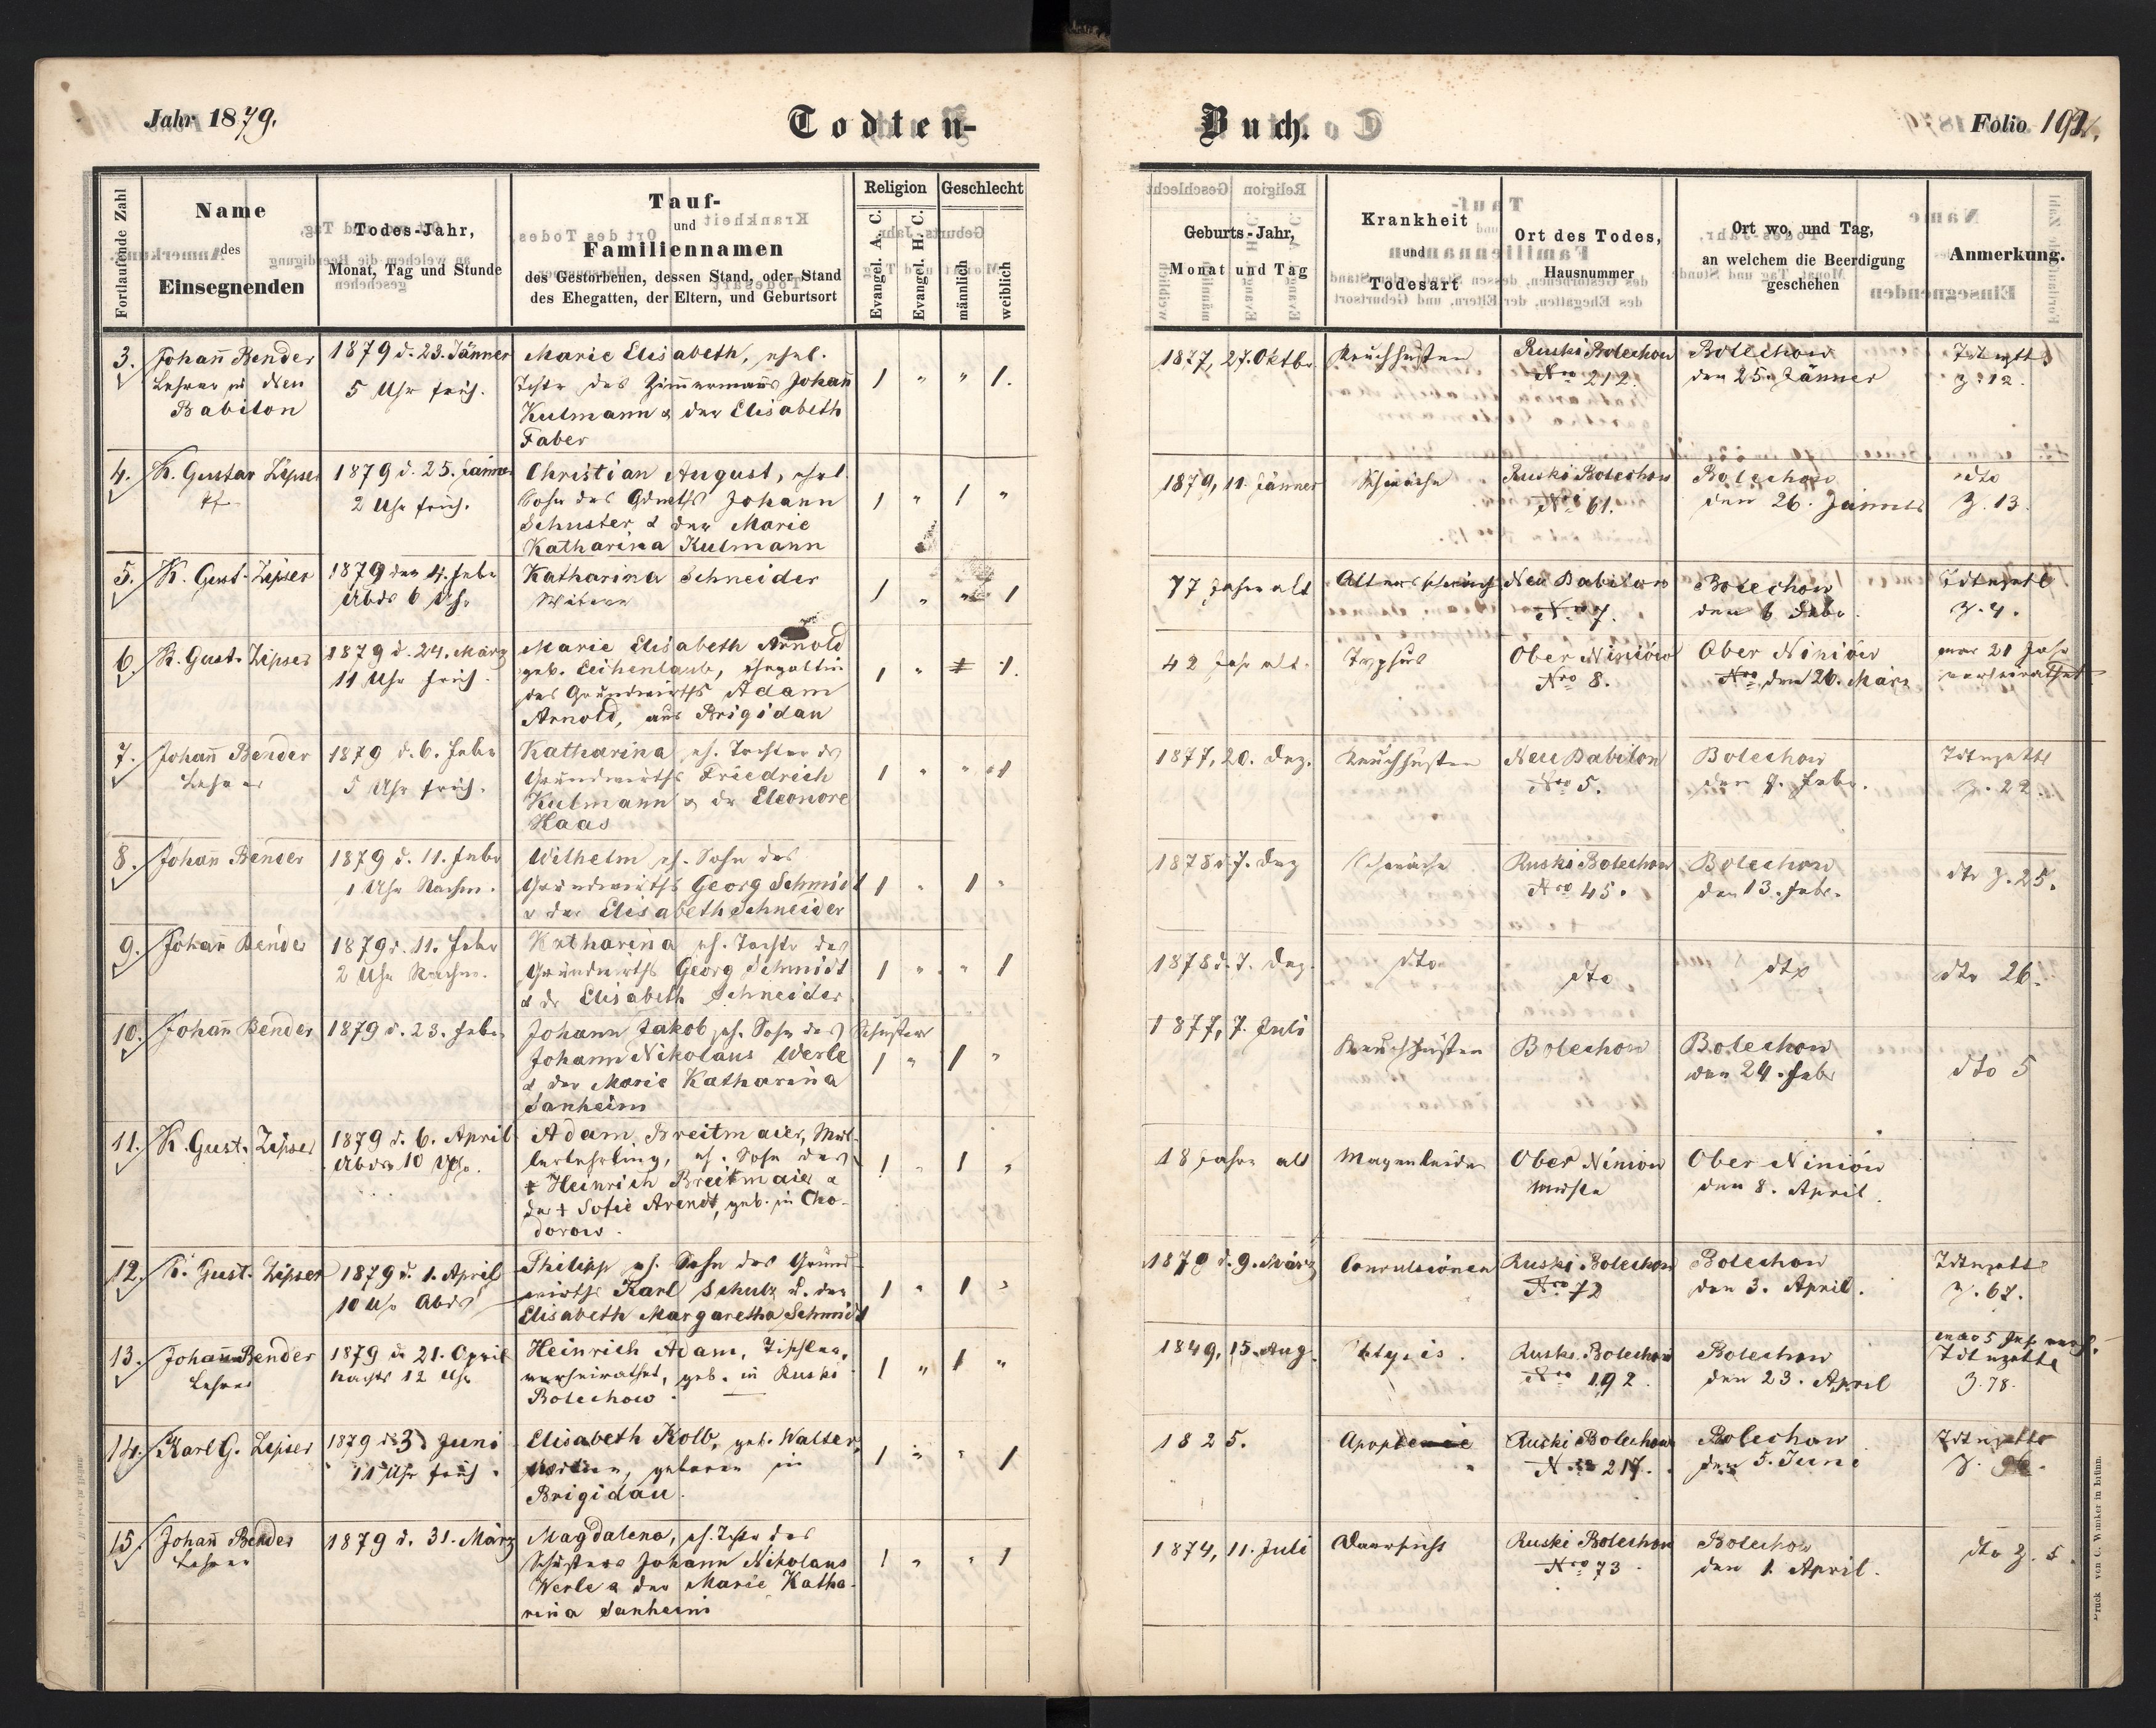 Jahr 1879.
Todten-
Buch.
Folio 192.
Fortlaufende Zahl
Name
des
Einsegnenden
Todes-Jahr,
Monat, Tag und Stunde
Tauf-
und
Familiennamen
des Gestorbenen, dessen Stand, oder Stand
des Ehegatten, der Eltern, und Geburtsort
Religion
Evangel. A. C.
Evangel. H. C.
Geschlecht
männlich
weiblich
Geburts-Jahr,
Monat und Tag
Krankheit
und
Todesart
Ort des Todes,
Hausnummer
Ort wo, und Tag,
an welchem die Beerdigung
geschehen
Anmerkung.
3. Johañ Bender 1879 d. 23. Jänner Marie Elisabeth, ehel. 1877, 27. Oktbr Keuchhusten Ruski Bolechow Bolechow
Lehrer in Neu 5 Uhr früh. des Zim̃ermañs Johañ 1 " " 1. Nro 212. den 25. Jänner Z. 12.
Babilon Kulmann & der Elisabeth
Faber
4. K. Gustav Zipser 1879 d. 25. Jänner Christian August, ehel. 1879, 11 Jänner Schwäche Ruski Bolechow Bolechow dto
2 Uhr früh. Sohn des Johann 1 " 1 " Nro 61. den 26. Jänner Z. 13.
Schuster & der Marie
Katharina Kulmann
5. K. Gust. Zipser 1879 den 4. Febr Katharina Schneider 77 Jahre alt Altersschwäche Neu Babilon Bolechow
Abds 6 Uhr Witwe 1 " " 1 Nro 7. den 6 Febr. Z. 4.
6. K. Gust. Zipser 1879 d. 24. März Marie Elisabeth Arnold 42 Jahr alt. Typhus Ober Niniów Ober Niniów war 21 Jahr
11 Uhr früh. geb. Eichenlaub, Ehegattin 1 " 1. Nro 8. Nro den 26. März verheirathet
des Grundwirths Adam
Arnold, aus Brigidau
7. Johañ Bender 1879 d. 6. Febr Katharina, eh. Tochter ds 1877, 20. Dez. Keuchhusten Neu Babilon Bolechow
Lehrer 5 Uhr früh. Grundwirths Friedrich 1 " " 1 Nro 5. den Febr. Z. 22.
Kulmann & dr Eleonore
Haas
8. Johañ Bender 1879 d. 11. Febr Wilhelm eh. Sohn des 1878 d. 7. Dez Schwäche Ruski Bolechow Bolechow dto Z. 25.
1 Uhr Nachm. Grundwirths Georg Schmidt 1 " 1 " Nro 45. den 13. Febr.
& der Elisabeth Schneider
9. Johañ Bender 1879 d. 11. Febr Katharina eh. Tochtr des 1878 d. 7. Dez. dto dto dto dto 26.
2 Uhr Nachm. Grundwirths Georg Schmidt 1 " " 1
& dr Elisabeth Schneider
10. Johañ Bender 1879 d. 23. Febr Johann Jakob eh. Sohn des Schusters 1877, 7. Juli
Johann Nikolaus Werle 1 " 1 " Keuchhusten Bolechow Bolechow dto 5
& der Marie Katharina den 24. Febr
Sanheim
11. K. Gust. Zipser 1879 d. 6. April Adam Breitmaier, Mül- 18 Jahre alt Magenleiden Ober Niniow Ober Niniów
Abds 10 Uhr. lerlehrling, eh. Sohn des 1 " 1 " den 8. April.
+ Heinrich Breitmaier &
der + Sofie Arendt, geb. in Cho-
dorow.
12. K. Gust. Zipser 1879 d. 1. April Philipp eh. Sohn des Grund- 1879 d. 9. März Convulsionen Ruski Bolechow Bolechow
10 Uhr Abds wirths Karl Schulz u. der 1 " 1 " Nro 72 den 3. April. Z. 67.
Elisabeth Margaretha Schmidt
13. Johann Bender 1879 d 21. April Heinrich Adam, Tischler, 1849, 15. Aug. Ruski Bolechow Bolechow
Lehrer Nachts 12 Uhr verheirathet, geb. in Ruski 1 " 1 " Nro 192. den 23. April Z. 78.
Bolechow.
14. Karl G. Zipser 1879 d 3 Juni Elisabeth Kolb, geb. Walter, 1825. Ruski Bolechow Bolechow
11 Uhr früh. Witwe, geboren in 1 " " 1 Nro 217. den 5. Juni Z.
Brigidau.
15. Johañ Bender 1879 d. 31. März Magdalena, eh. des 1874, 11. Juli Ruski Bolechow Bolechow dto Z. 5.
Lehrer Schusters Johann Nikolaus 1 " " 1 Nro 73 den 1. April.
Werle & der Marie Katha-
rina Sanheim
Druck von C. Winiker in Brünn.